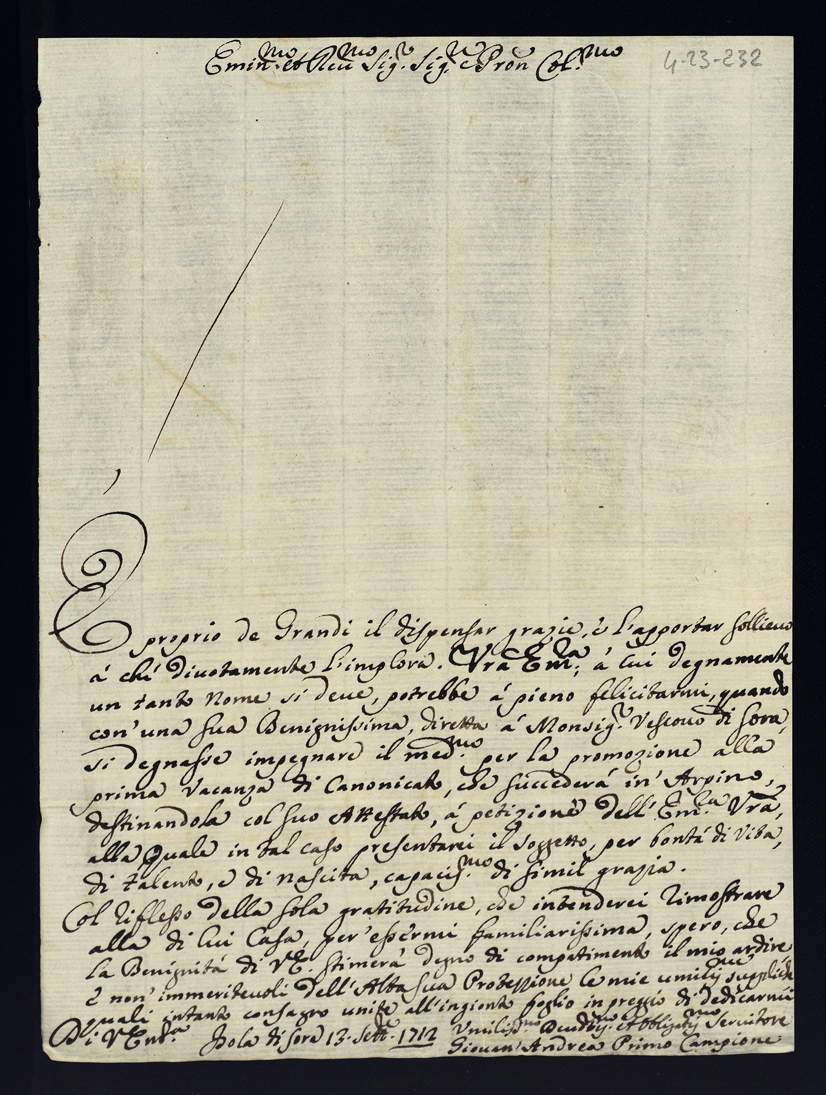 Emin:mo et Reu:mo Sig:r Sig:r e Pron Col:mo
4-23-232
È proprio de Grandi il dispensar grazie, è l'apportar sollieuo
á chi diuotamente l'implora. Vrã Em:za, á cui degnamente
un tanto nome si deue, potrebbe á pieno felicitarmi, quando
con'una sua Benignissima, diretta á Monsig:r Vescouo di Sora,
si degnasse impegnare il med:mo per la promozione alla
prima Vacanza di Canonicato, che succederá in'Arpino,
destinandola col suo Attestato, á petizione dell'Em:za Vrã,
alla quale in tal caso presentarei il Soggetto, per bontá di Vita,
di talento, e di nascita, capacis:mo di simil grazia.
Col riflesso della sola gratitudine, che intenderei rimostrare
alla di lui Casa, per'essermi familiarissima, spero, che
la Benignitá di V.E. stimerá degno di compatimento il mio ardire
è non'immeriteuoli dell'Alta sua Protezzione le mie umili suppliche
quali intanto consagro unite all'ingionto foglio in preggio di dedicarmi
Di V. Em:za Isola di Sora 13. Sett:e 1712 Vmilis:mo Deuotis:mo et Obligatis:mo Seruitore
Giouan'Andrea Primo Campione